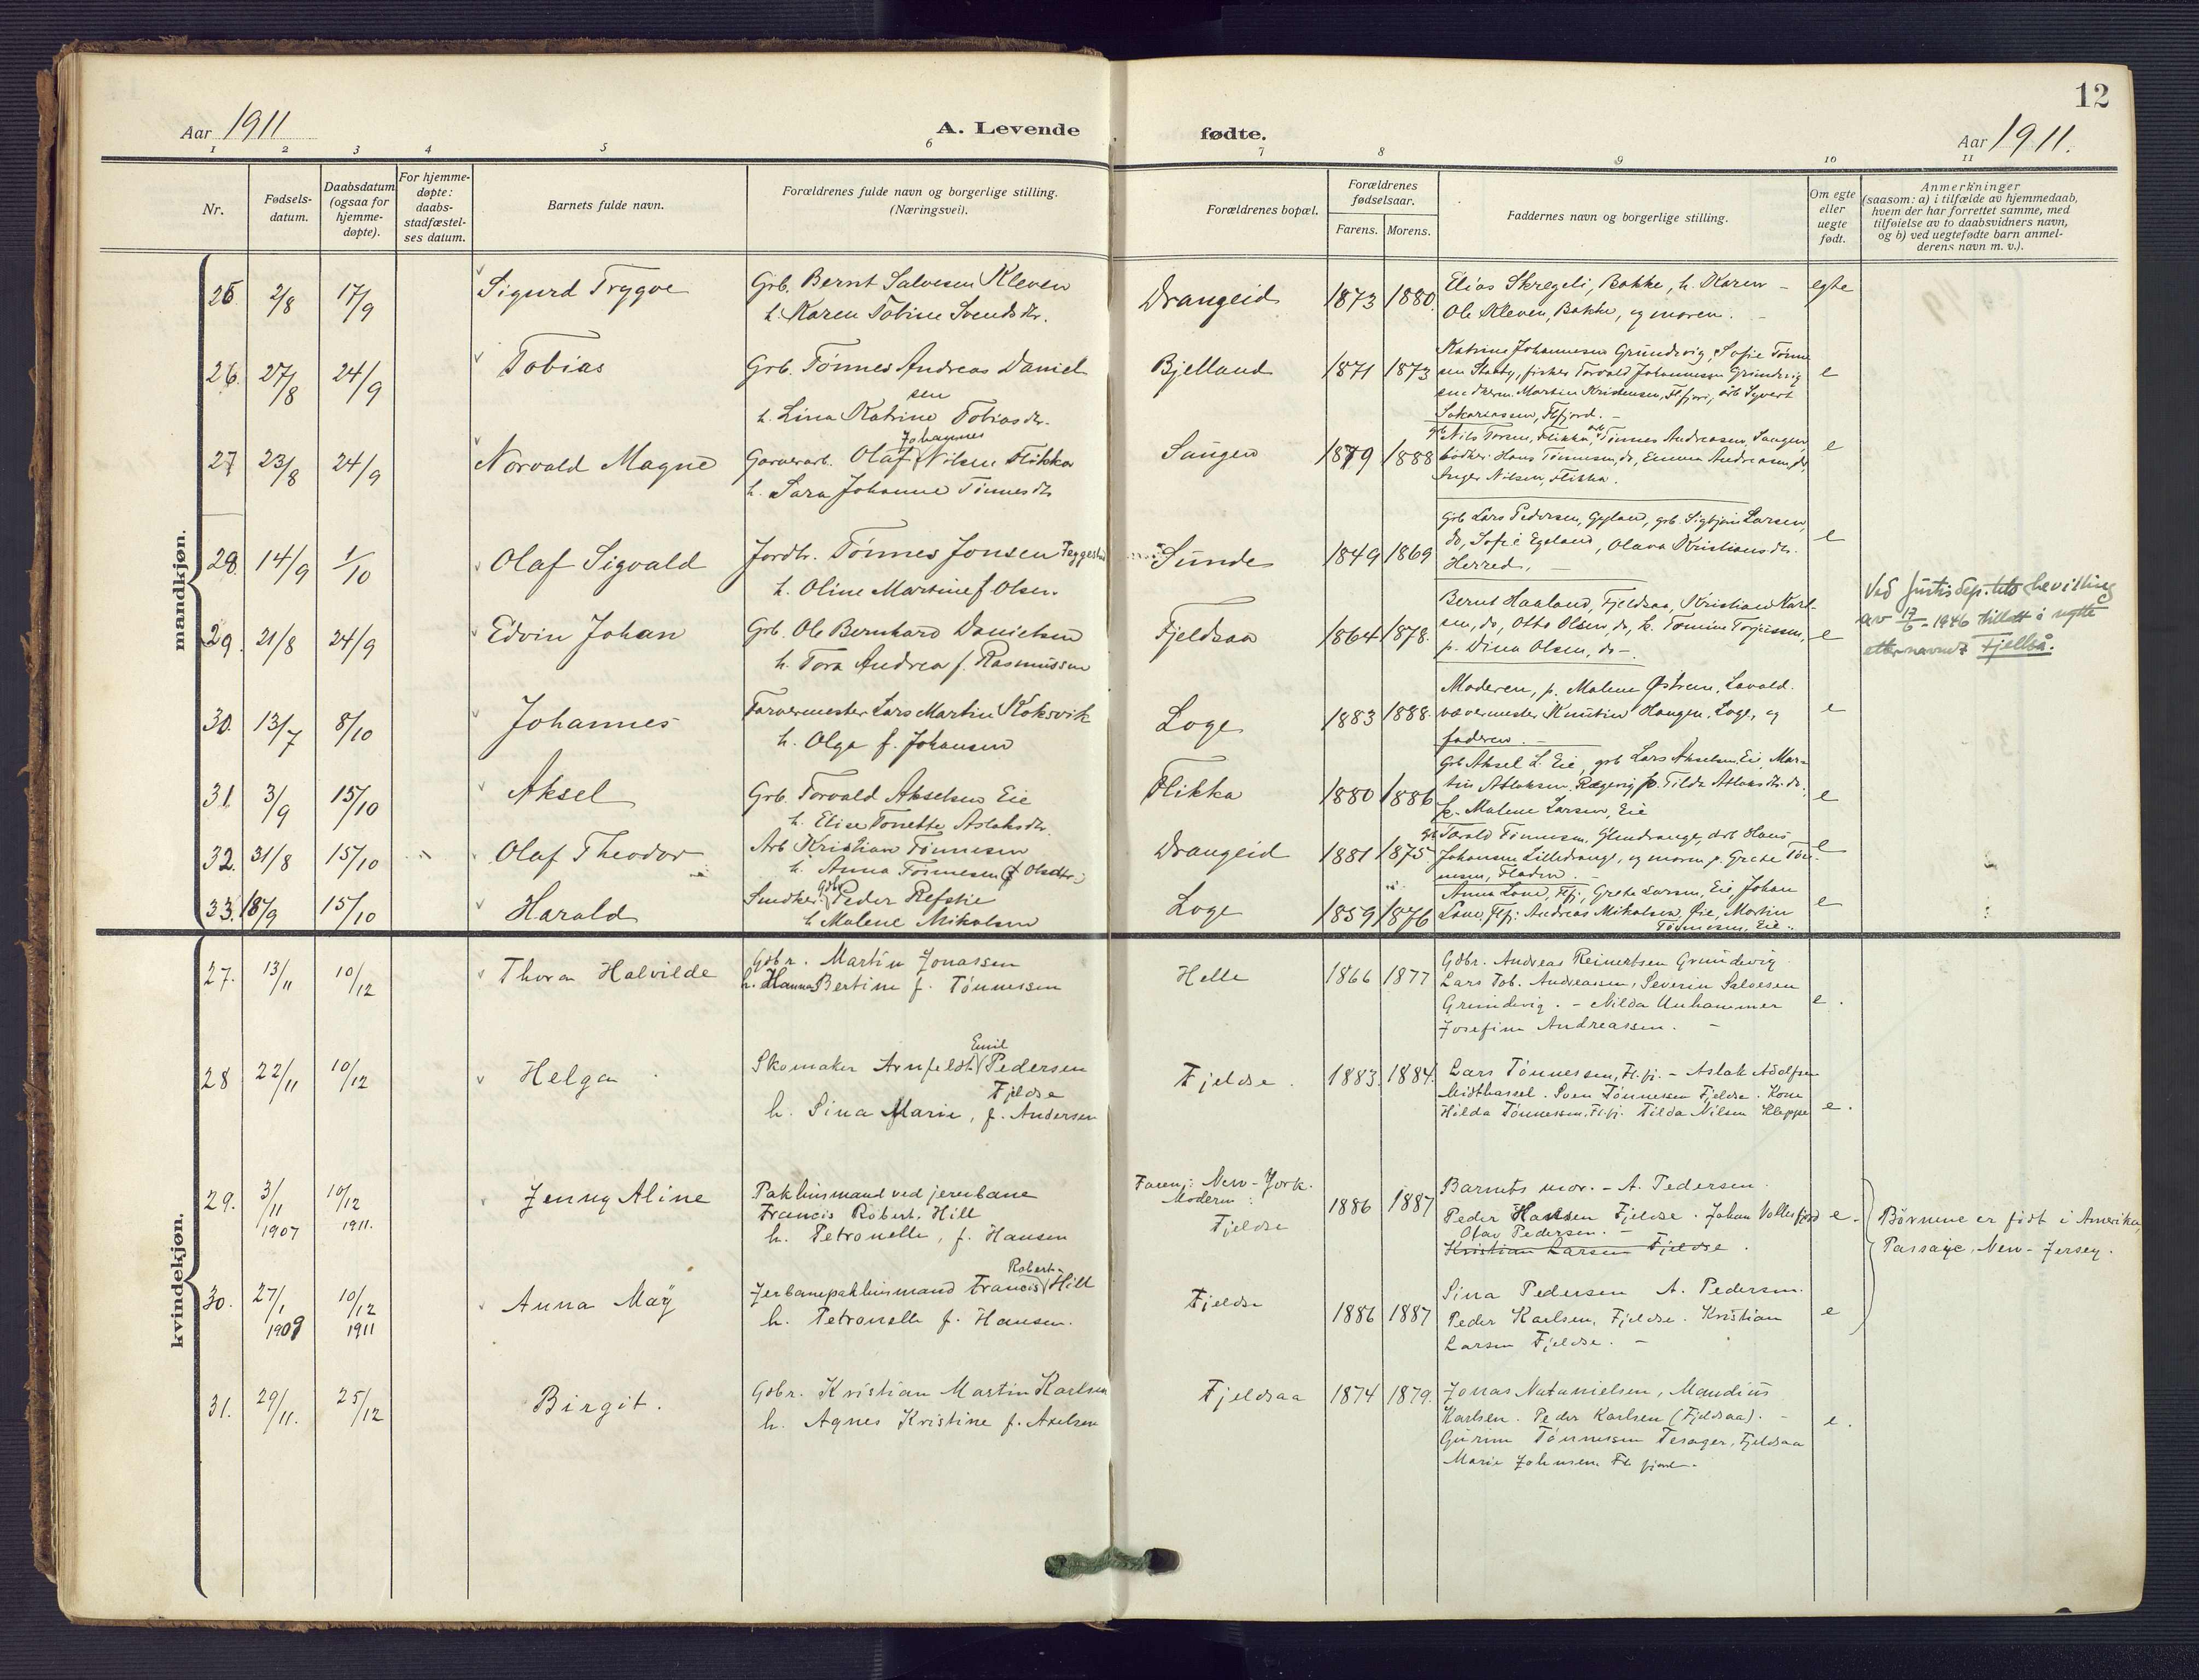 12
Aar 1911
A. Levende fødte.
Aar 1911.
1 2 3 4 5 6 7 8 9 10 11
Nr.
Fødsels-
datum.
Daabsdatum
(ogsaa for
hjemme-
døpte).
For hjemme-
døpte:
daabs-
stadfæstel-
ses datum.
Barnets fulde navn.
Forældrenes fulde navn og borgerlige stilling.
(Næringsvei).
Forældrenes bopæl.
Forældrenes
fødselsaar.
Farens. Morens.
Faddernes navn og borgerlige stilling.
Om egte
eller
uegte
født.
Anmerkninger
(saasom: a) i tilfælde av hjemmedaab,
hvem der har forrettet samme, med
tilføielse av to daabsvidners navn,
og b) ved uegtefødte barn anmel-
derens navn m. v.).
mandkjøn.
25 2/8 17/9 Sigurd Trygve
Grb. Bernt Salvesen Kleven
h. Karen Tobine Svendsdtr.
Drangeid 1873 1880
Elias Skregeli, Bakke, h. Karen -
Ole Kleven, Bakke, og moren. -
egte
26. 27/8 24/9 Tobias
Grb. Tønnes Andreas Daniel
sen
h. Lina Katrine Tobiasdtr.
Bjelland 1871 1873
Katrine Johannesen Grundevig, Sofie Tønne
sen, fisker Torvald Johannesen Grundevig
Martin Kristensen, Flfjord, arb Syvert
Sakariassen, Flfjord. -
e
27 23/8 24/9 Norvald Magne
Garverarb. Olaf Johannes Nilsen Flikka
h. Sara Johanne Tønnesdtr
Sangen 1879 1888
Nils Torsen, Flikka, arb. Tønnes Andreasen, Sangen,
bødker Hans Tønnesen, do, Emma Andreasen, do
Inger Nilsen, Flikka.
e
28. 14/9 1/10 Olaf Sigvald
Jordbr. Tønnes Jonsen Teggestad
h. Oline Martine f Olsen.
Sunde 1849 1869
Grb Lars Pedersen, Gyland, grb. Sigbjørn Larsen,
do, Sofie Egeland, Olava Kristiansdtr.
Herred. -
e
29. 21/8 24/9 Edvin Johan
Grb. Ole Bernhard Danielsen
h. Tora Andrea f. Rasmussen
Fjeldsaa 1864 1878.
Bernt Haaland, Fjeldsaa, Kristian Karl-
sen, do, Otto Olsen, do, k. Tomine Torjussen,
p. Dina Olsen, do -.
e
Ved Justisdep.tets bevilling
av 17/6 - 1946 tillatt å nytte
etternavnet Fjellså.
30. 13/7 8/10 Johannes
Farvermester Lars Martin Koksvik
h. Olga f. Johansen
Loge 1883 1888.
Moderen, p. Malene Østrem, Lavold.
vævermester Knut Haugen, Loge, og
faderen. -
e
31. 3/9 15/10 Aksel
Grb. Torvald Akselsen Eie
h. Elise Tonette Aslaksdtr.
Flikka 1880 1886
Grb Aksel L. Eie, grb Lars Akselsen Eie, Mar-
tin Aslaksen, Rægevig p. Tilda Aslaksdtr. do,
p. Malene Larsen, Eie
e
32. 31/8 15/10 Olaf Theodor
Arb Kristian Tønnesen
h. Anna Tønnesen (f Olsdtr.)
Drangeid 1881 1875
Torald Tønnesen, Glendrange, arb Hans
Johansen Lilledrange, og moren p. Grete Tøn-
nesen, Fladen. -
e
33. 18/9 15/10 Harald
Snedker Gdbr. Peder Refstie
h Malene Mikalsen
Loge 1859 1876
Anna Lone, Flfj, Grete Larsen, Eie Johan
Lone, Flfj. Andreas Mikalsen, Øie, Martin
Tønnesen, Eie.
e
kvindekjøn.
27. 13/11 10/12 Thora Halvilde
Gdbr. Martin Jonassen
h. Hanna Bertine f. Tønnessen
Helle 1866 1877
Gdbr. Andreas Reinertsen Grundevig
Lars Tob. Andreassen, Severin Salvesen
Grundevig. - Nilda Unhammer
Josefine Andreassen. -
e.
28 22/11 10/12 Helga
Skomaker Arnfeldt Emil Pedersen
Fjeldse
h. Sina Marie, f. Andersen
Fjeldse. 1883. 1884.
Lars Tønnessen, Fl.fj. - Aslak Adolfsen
Midthassel. Sven Tønnessen Fjeldse. Kone
Hilda Tønnessen, Fl.fj. Tilda Nilsen Kleppe
e.
29. 3/11 1907 10/12 1911. Jenny Aline
Pakhusmand ved jernbane
Francis Robert. Hill
h. Petronelle, f. Hansen
Faren: New-York.
Moderen:
Fjeldse
1886 1887
Barnets mor. - A. Pedersen.
Peder Hansen Fjeldse. Johan Vollesfjord
Olav Pedersen. -
Kristian Larsen Fjeldse.
e.
Børnene er født i Amerika,
Passaic, New-Jersey.
30. 27/1 1909 10/12 1911 Anna May
Jerbanepakhusmand Francis Robert Hill
h. Petronelle f. Hansen.
Fjeldse 1886 1887
Sina Pedersen A. Pedersen.
Peder Karlsen, Fjeldse. Kristian
Larsen Fjeldse. -
e
31. 29/11. 25/12 Birgit.
Gdbr. Kristian Martin Karlsen
h. Agnes Kristine f. Axelsen
Fjeldsaa 1874 1879.
Jonas Natanielsen, Maudius
Karlsen. Peder Karlsen (Fjeldsaa). -
Gurine Tønnesen Tesager, Fjeldsaa
Marie Johnsen Flfjord.
e.